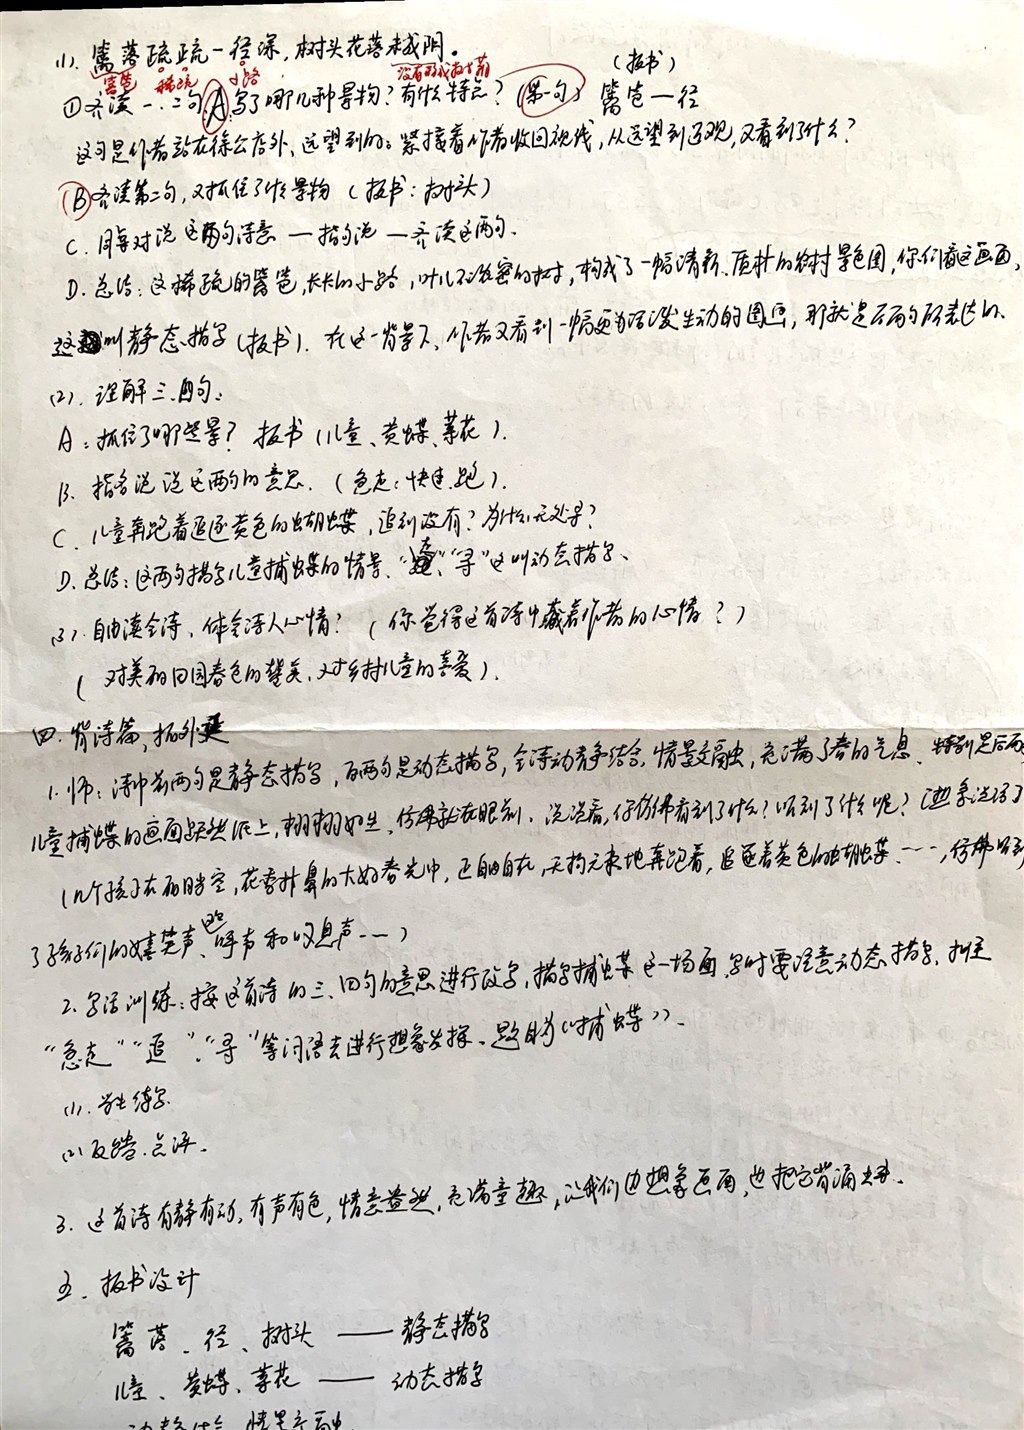 (1). 篱落疏疏一径深，树头花落未成阴。
篱笆 稀疏 小路 没有形成树荫
(板书)
①齐读一、二句，A写了哪几种景物？有什么特点？(第一句) 篱笆一径
这句是作者站在徐公店外，远望到的；紧接着作者收回视线，从远望到近观，又看到了什么？
B 齐读第二句，又抓住了什么景物 (板书：树头)
C. 同桌对说这两句诗意 — 指名说 — 齐读这两句.
D. 总结：这稀疏的篱笆，长长的小路，叶儿不浓密的树，构成了一幅清新、质朴的农村景色图，你们看这画面，
这叫静态描写(板书). 在这一背景下，作者又看到一幅更为活泼生动的图画，那就是后两句所表达的.
(2). 理解三、四句：
A：抓住了哪些景？板书(儿童、黄蝶、菜花).
B. 指名说说这两句的意思. (急走：快速跑).
C. 儿童奔跑着追逐黄色的蝴蝶，追到没有？为什么无处寻？
D. 总结：这两句描写儿童捕蝶的情景、“走”、“寻”这叫动态描写、
(3). 自由读全诗，体会诗人心情？(你觉得这首诗中藏着作者的心情？)
(对美丽田园春色的赞美，对乡村儿童的喜爱).
四. 背诗篇，拓外延
1. 师：诗中前两句是静态描写，后两句是动态描写，全诗动静结合，情景交融，充满了春的气息、特别是后两
儿童捕蝶的画面跃然纸上，栩栩如生、仿佛就在眼前、说说看，你仿佛看到了什么？听到了什么呢？(想象说话)
(几个孩子在丽日晴空，花香扑鼻的大好春光中，正自由自在，无拘无束地奔跑着，追逐着黄色的蝴蝶、……，仿佛听到
了孩子们的嬉笑声、跑呼声和叹息声……)
2. 写话训练：按这首诗的三、四句的意思进行改写，描写捕蝶这一场面、写时要注意动态描写，抓住
“急走”“追”、“寻”等词语去进行想象发挥、题目为《捕蝶》.
(1). 学生练写.
(2) 反馈、点评.
3. 这首诗有静有动，有声有色，情意盎然，充满童趣，让我们边想象画面，边把它背诵出来.
五、板书设计
篱落、径、树头 —— 静态描写
儿童、黄蝶、菜花 —— 动态描写
动静结合 情景交融